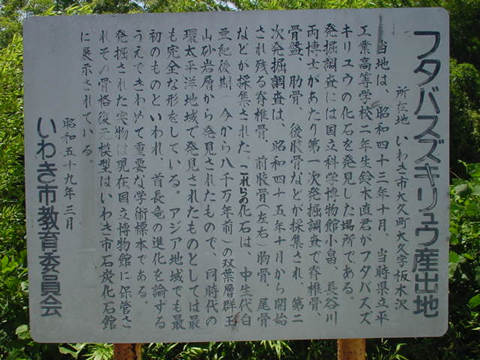 フタバスズキリュウ産出地
所在地 いわき市大久町大久字板木沢
当地は、昭和四十三年十月、当時県立平
工業高等学校二年生鈴木直君がフタバスズ
キリュウの化石を発見した場所である。
発掘調査には国立科学博物館小畠、長谷川
両博士があたり第一次発掘調査で脊椎骨、
骨盤、肋骨、後肢骨などが採集され、第二
次発掘調査は、昭和四十五年十月から開始
され残る脊椎骨、前肢骨(左右)肋骨、尾骨
などが採集された。これらの化石は、中生代白
亜紀後期(今から八千万年前)の双葉層群玉
山砂岩層から発見されたもので、同時代の
環太平洋地域で発見されたものとしては最
も完全な形をしている。アジア地域でも最
初のものといわれ、首長竜の進化を論ずる
うえできわめて重要な学術標本である。
発掘された実物は現在国立博物館に保管さ
れその骨格復元模型はいわき市石炭化石館
に展示されている。
昭和五十九年三月
いわき市教育委員会